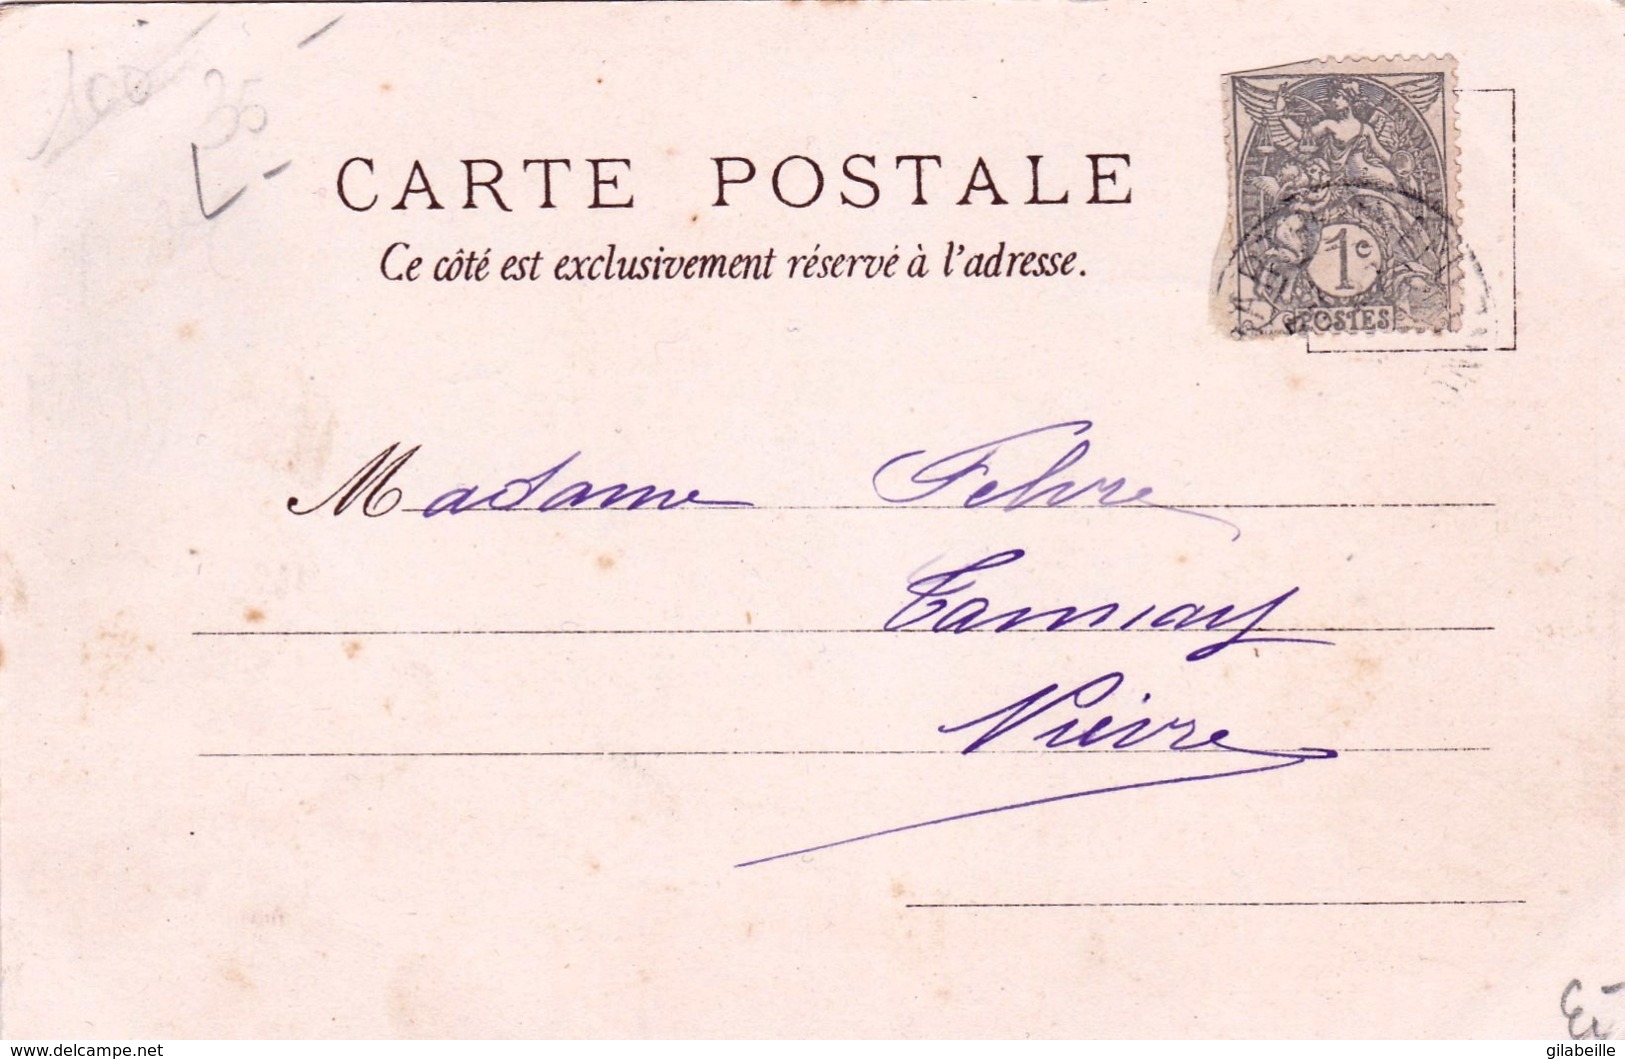 100
35
CARTE POSTALE
Ce côté est exclusivement réservé à l'adresse.
1c
POSTES
Madame Febvre
Tannay
Nièvre
www.delcampe.net
gilabeille